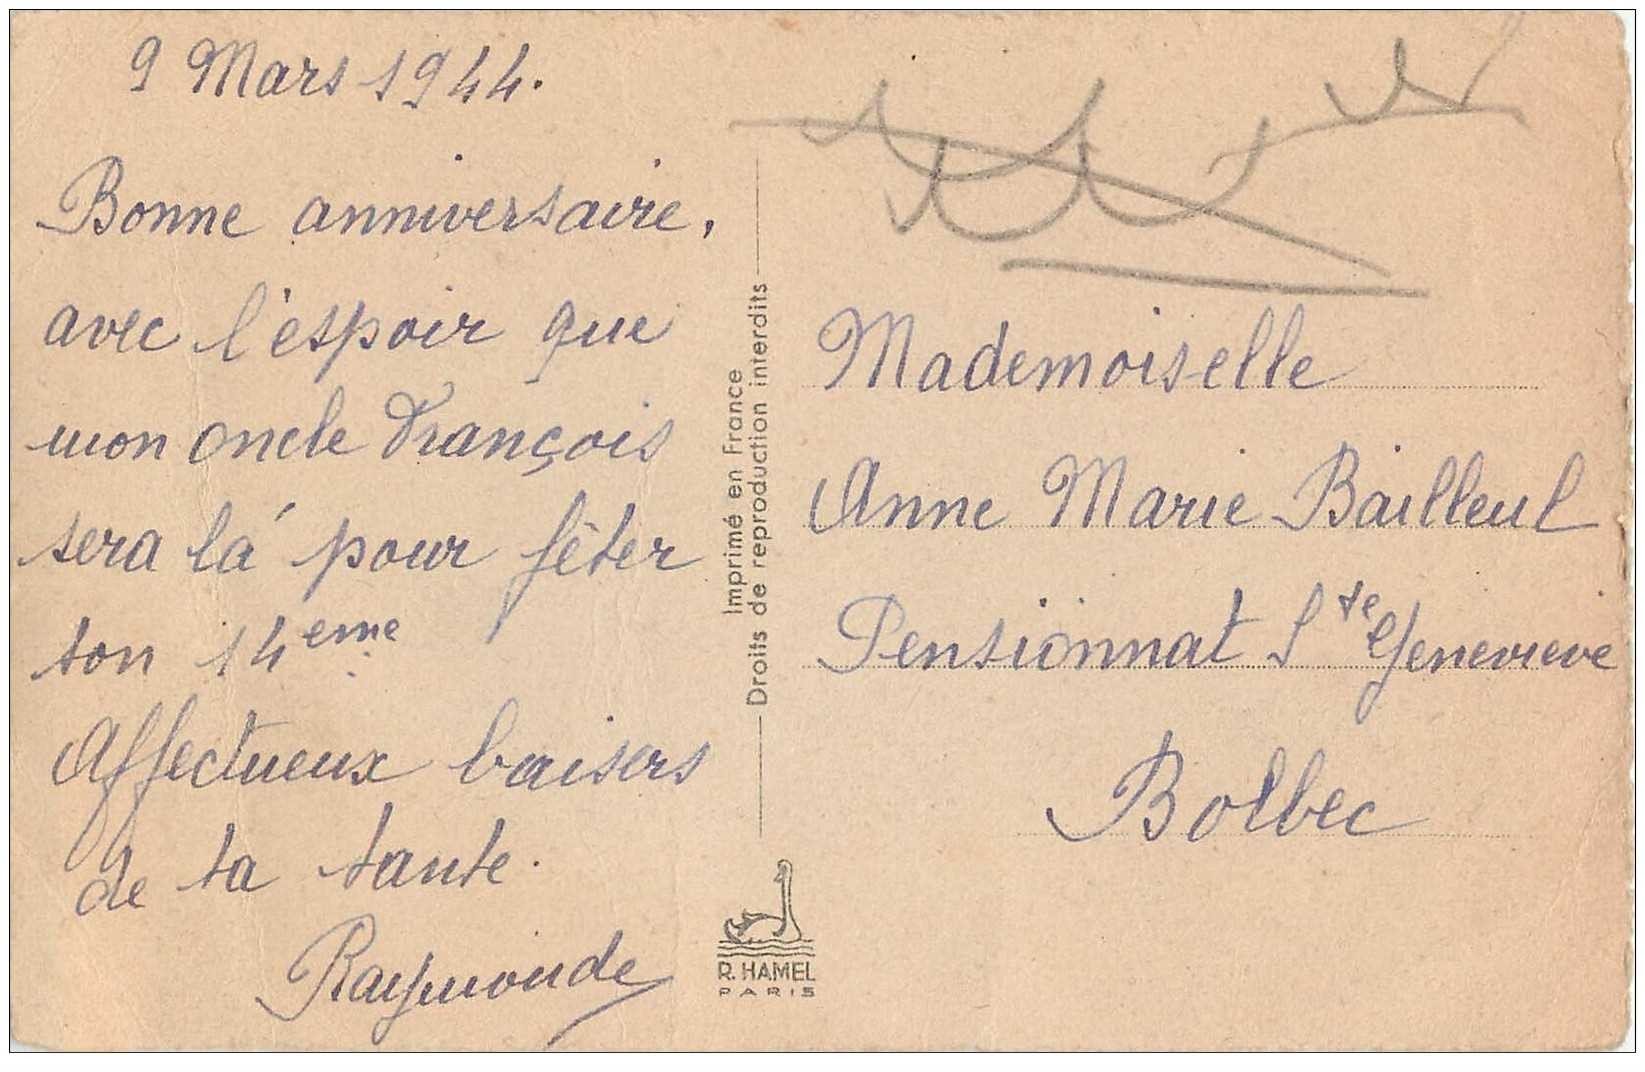 9 Mars 1944.
Bonne anniversaire,
avec l'espoir que
mon oncle François
sera là pour fêter
ton 14eme
Affectueux baisers
de ta tante.
Raymonde
Imprimé en France
Droits de reproduction interdits
R. HAMEL
PARIS
Mademoiselle
Anne Marie Bailleul
Pensionnat Ste Genevieve
Bolbec